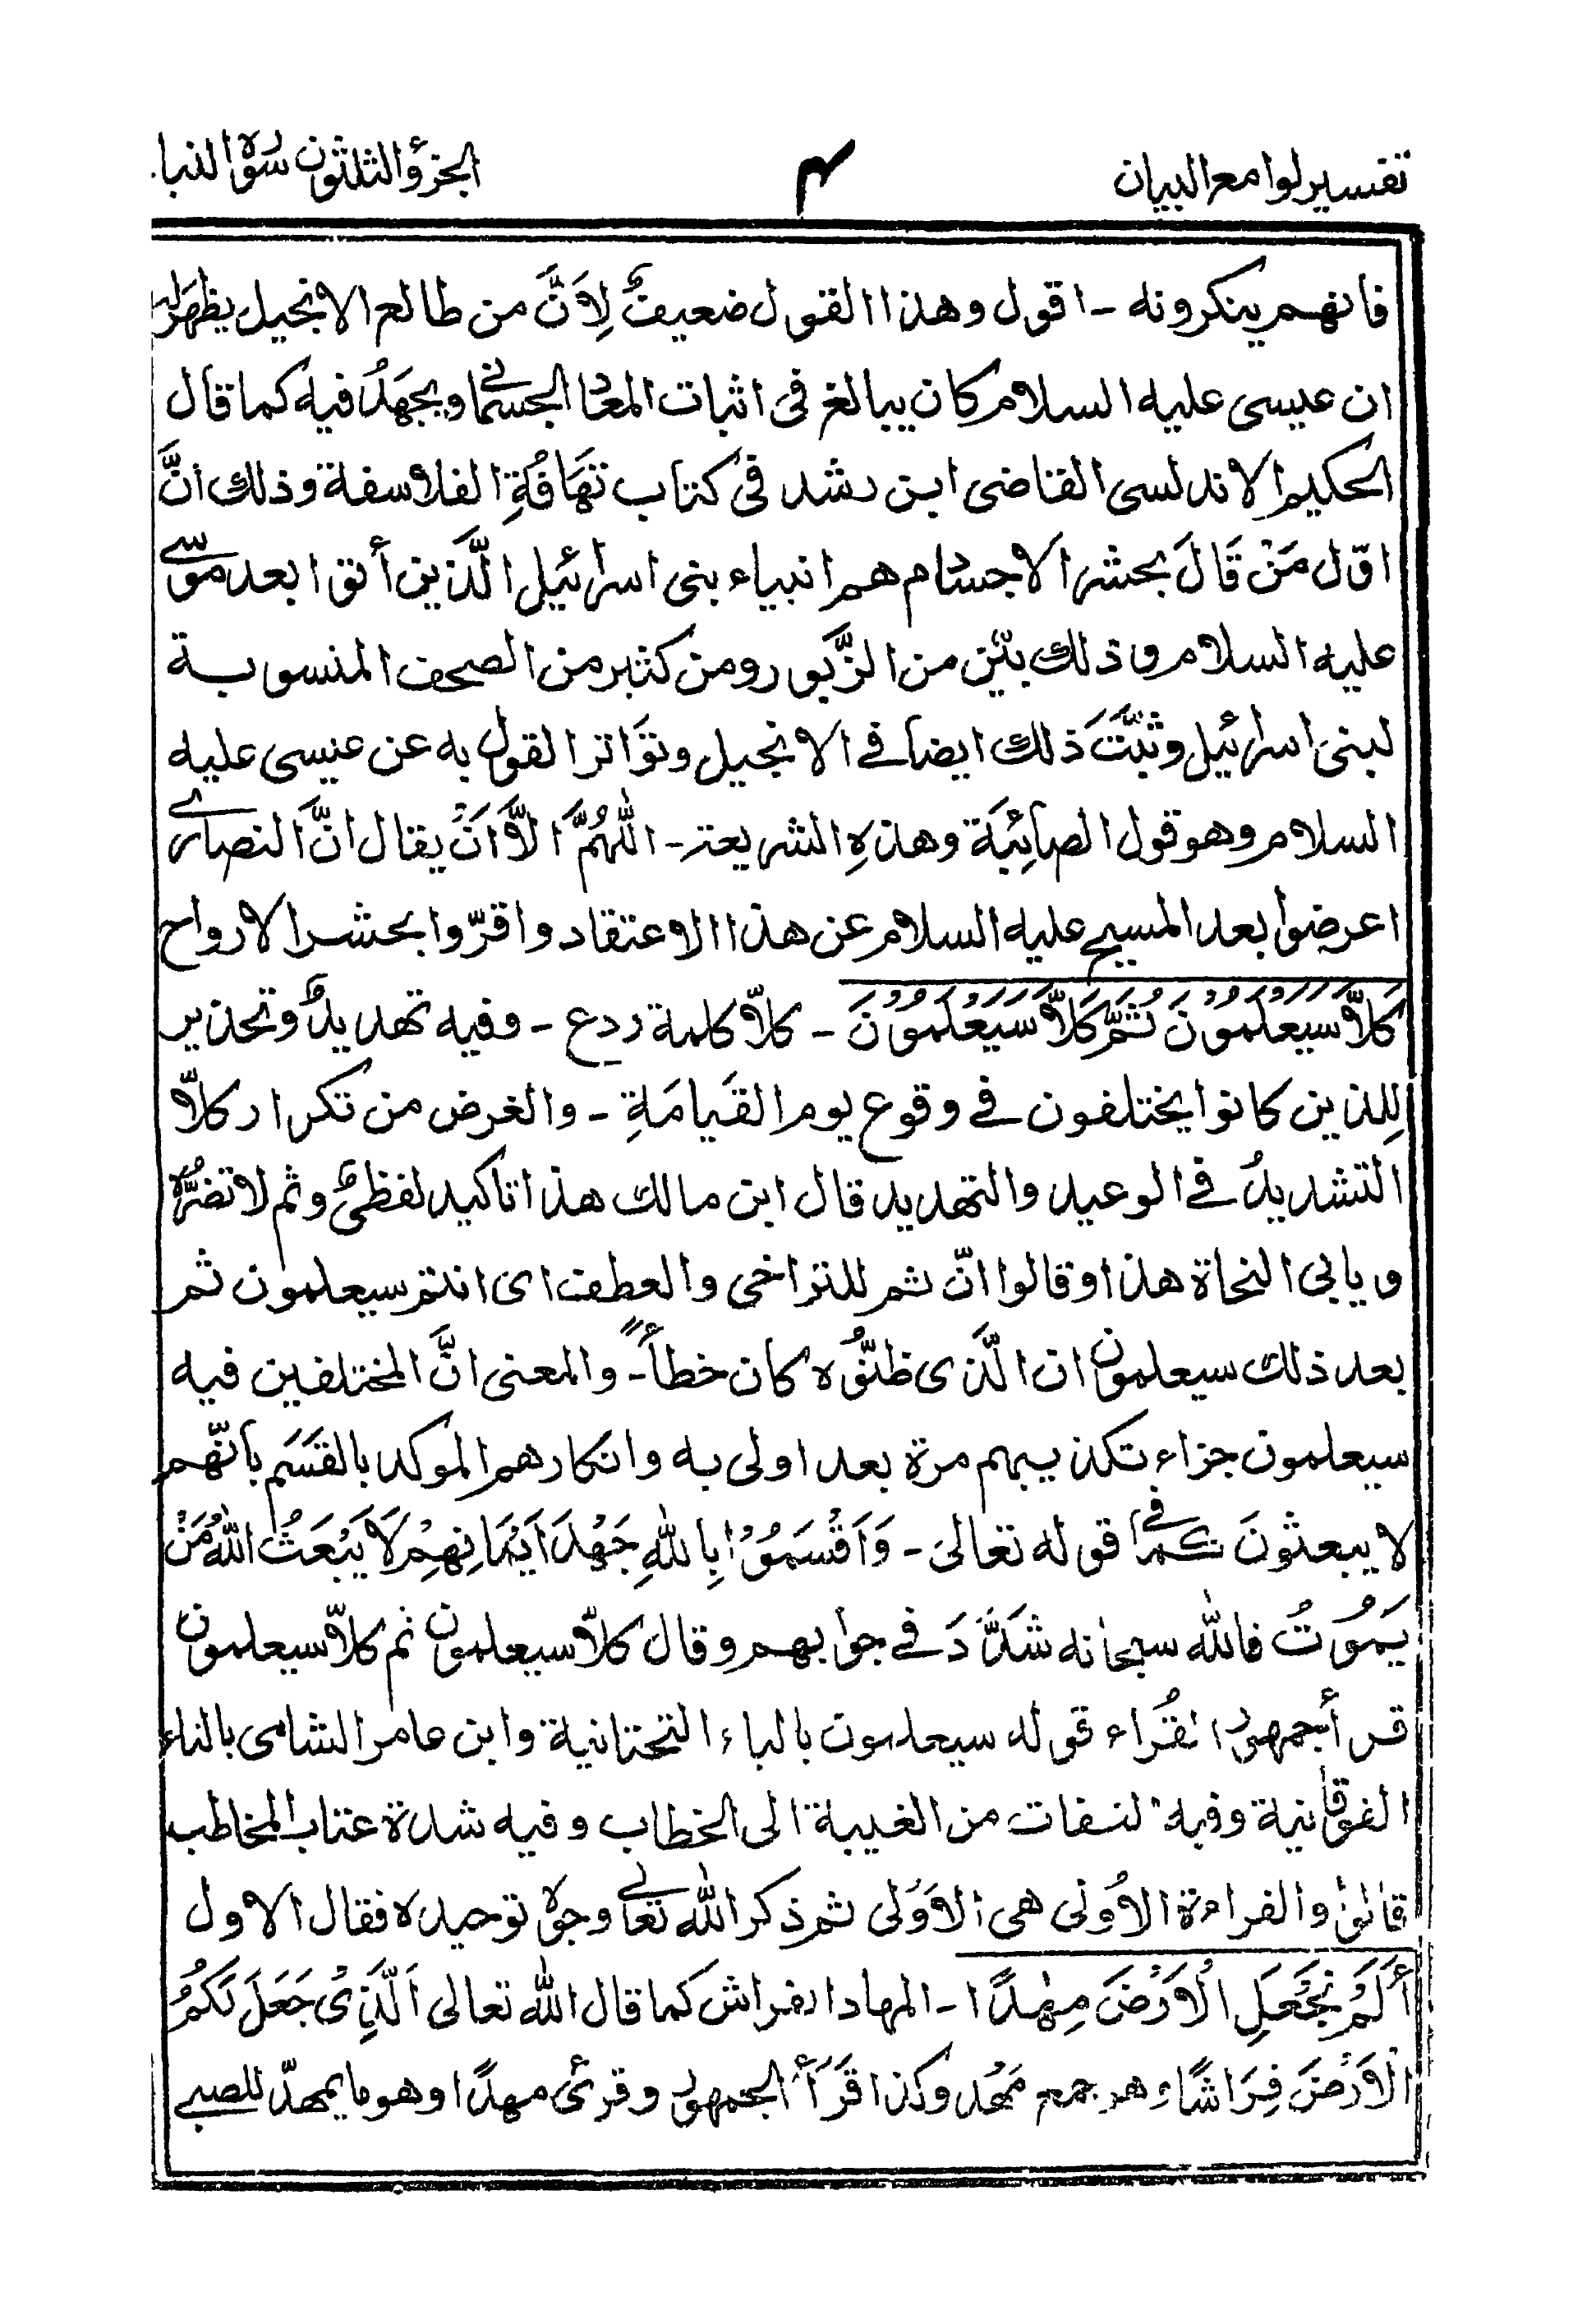 تفسير لوامع البيان ۴ الجزؤ الثلثون سورة النبا
فانهم ينكرونه - اقول وهذا القول ضعيفٌ لِاَنَّ من طالع الانجيل يظهر له
ان عيسى عليه السلام كان يبالغ فى اثبات المعاد الجسمانى ويجهدُ فيه كما قال
الحكيم الاندلسى القاضى ابن رشد فى كتاب تهَافُةِ الفلاسفة وذلك انَّ
اوّل مَنْ قَالَ بحشر الاجسام هم انبياء بنى اسرائيل الَّذين أتوا بعد موسىٰ
عليه السلام وذلك بيّن من الزَّبور ومن كثير من الصحف المنسوبة
لبنى اسرائيل وثبَّتَ ذلك ايضا فے الانجيل وتوَاتر القول به عن عيسى عليه
السلام وهو قول الصابِئَة وهذهِ الشريعة - اللّٰهُمَّ الَّا اَنْ يقال انَّ النصارىٰ
اعرضوا بعد المسيح عليه السلام عن هذا الاعتقاد واقرّوا بحشر الارواح
كَلَّا سَيَعْلَمُوْنَ ثُمَّ كَلَّا سَيَعْلَمُوْنَ - كلاّ كلمة ردع - وفيه تهديدٌ وتحذير
لِلذين كانوا يختلفون فے وقوع يوم القَيامَةِ - والغرض من تكرار كلاّ
التشديدُ فے الوعيد والتهديد قال ابن مالك هذا تاكيد لفظىٌ وثم لا تضرُّه
ويابى النحاة هذا وقالوا انّ ثم للتراخى والعطف اى انتم سيعلمون ثم
بعد ذلك سيعلمون ان الَّذى ظنّوُه كان خطأً - والمعنى انَّ المختلفين فيه
سيعلمون جزاء تكذيبهم مرة بعد اولى به وانكارهم الموكد بالقَسَم بأنّهم
لا يبعثونَ كما فى قوله تعالى - وَاَقْسَمُوْا بِاللّٰهِ جَهْدَ اَيْمَانِهِمْ لَا يَبْعَثُ اللّٰهُ مَنْ
يَمُوْتُ فاللّٰه سبحانه شَدَّدَ فے جوابهم وقال كلاّ سيعلمون ثم كلاّ سيعلمون
قرأ جمهور القُرّاء قوله سيعلمون بالياء التحتانية وابن عامر الشامى بالتاء
الفوقانية وفيه التفات من الغيبة الى الخطاب وفيه شدة عتاب المخاطب
والقراءة الاُولى هى الاَوْلى ثم ذكر اللّٰه تعالىٰ وجوه توحيده فقال الاول
أَلَمْ نَجْعَلِ الْاَرْضَ مِهٰدًا - المهاد الفراش كما قال اللّٰه تعالى اَلَّذِىْ جَعَلَ لَكُمُ
الْاَرْضَ فِرَاشًا وهو جمع مَهْد وكذا قَرَأَ الجمهور وقرئ مهدًا وهو ما يمهدّ للصبے